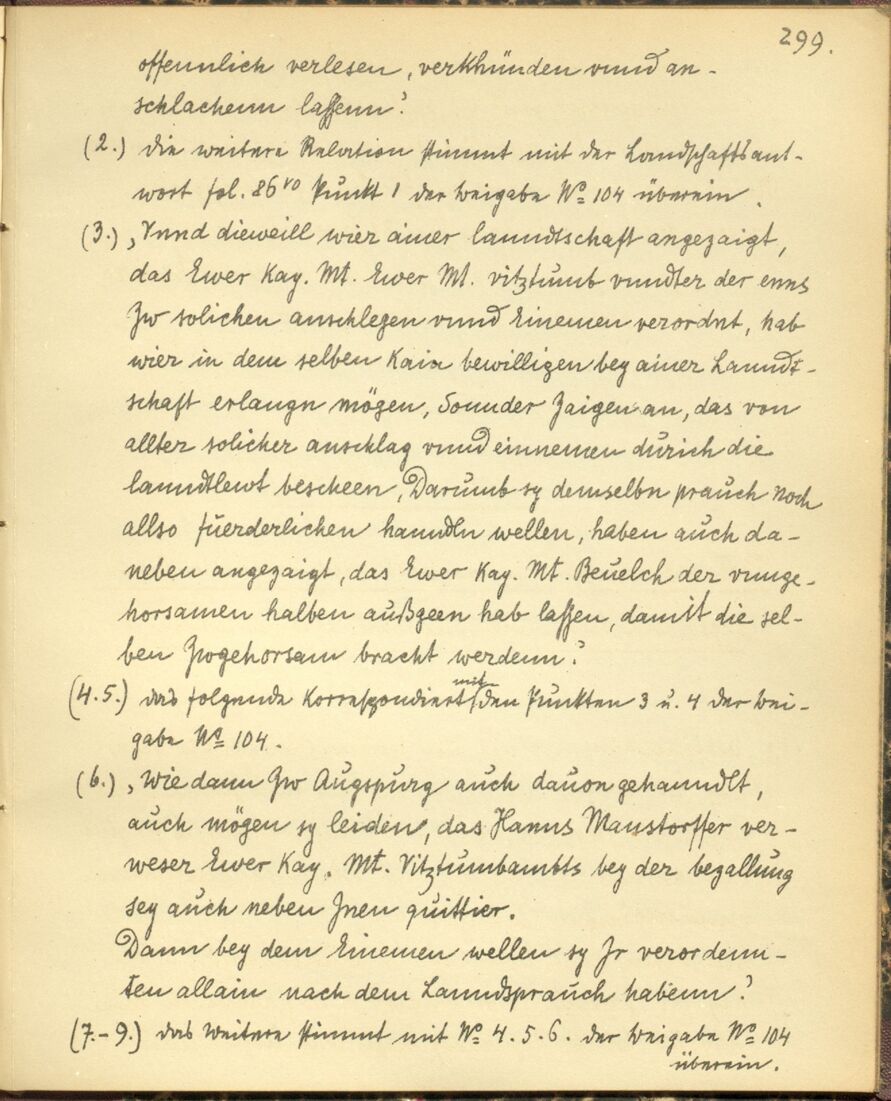 299.
offennlich verlesen, verkhünden vnnd an-
schlachenn lassenn?
(2.) die weitere Relation stimmt mit der Landschaftsant-
wort fol. 86vo Punkt 1 der Beigabe No 104 überein.
(3.) „Vnnd dieweill wier ainer lanndtschaft angezaigt,
das Ewer Kay. Mt. Ewer Mt. vitztumb vnndter der enns
Zw solichen anschlegen vnnd Einemen verordnt, hab
wier in dem selben Kain bewilligen bey ainer Lanndt-
schaft erlangn mögen, Sonnder Zaigen an, das von
allter solicher anschlag vnnd einnemen durich die
lanndtlewt bescheen, Darumb sy demselbn prauch noch
allso fuerderlichen hanndln wellen, haben auch da-
neben angezaigt, das Ewer Kay. Mt. Beuelch der vnnge-
horsamen halben außgeen hab lassen, damit die sel-
ben Zwgehorsam bracht werdenn?
(4.5.) das folgende Korrespondiert mit den Punkten 3 u. 4 der Bei-
gabe No 104.
(6.) „Wie dann Zw Augspurg auch dauon gehanndlt,
auch mögen sy leiden, das Hanns Manstorffer ver-
weser Ewer Kay. Mt. Vitztumbambts bey der bezallung
sey auch neben Jnen quittier.
Dann bey dem Einemen wellen sy Jr verordenn-
ten allain nach dem Lanndsprauch habenn?
(7.-9.) das Weitere stimmt mit No 4.5.6. der Beigabe No 104
überein.